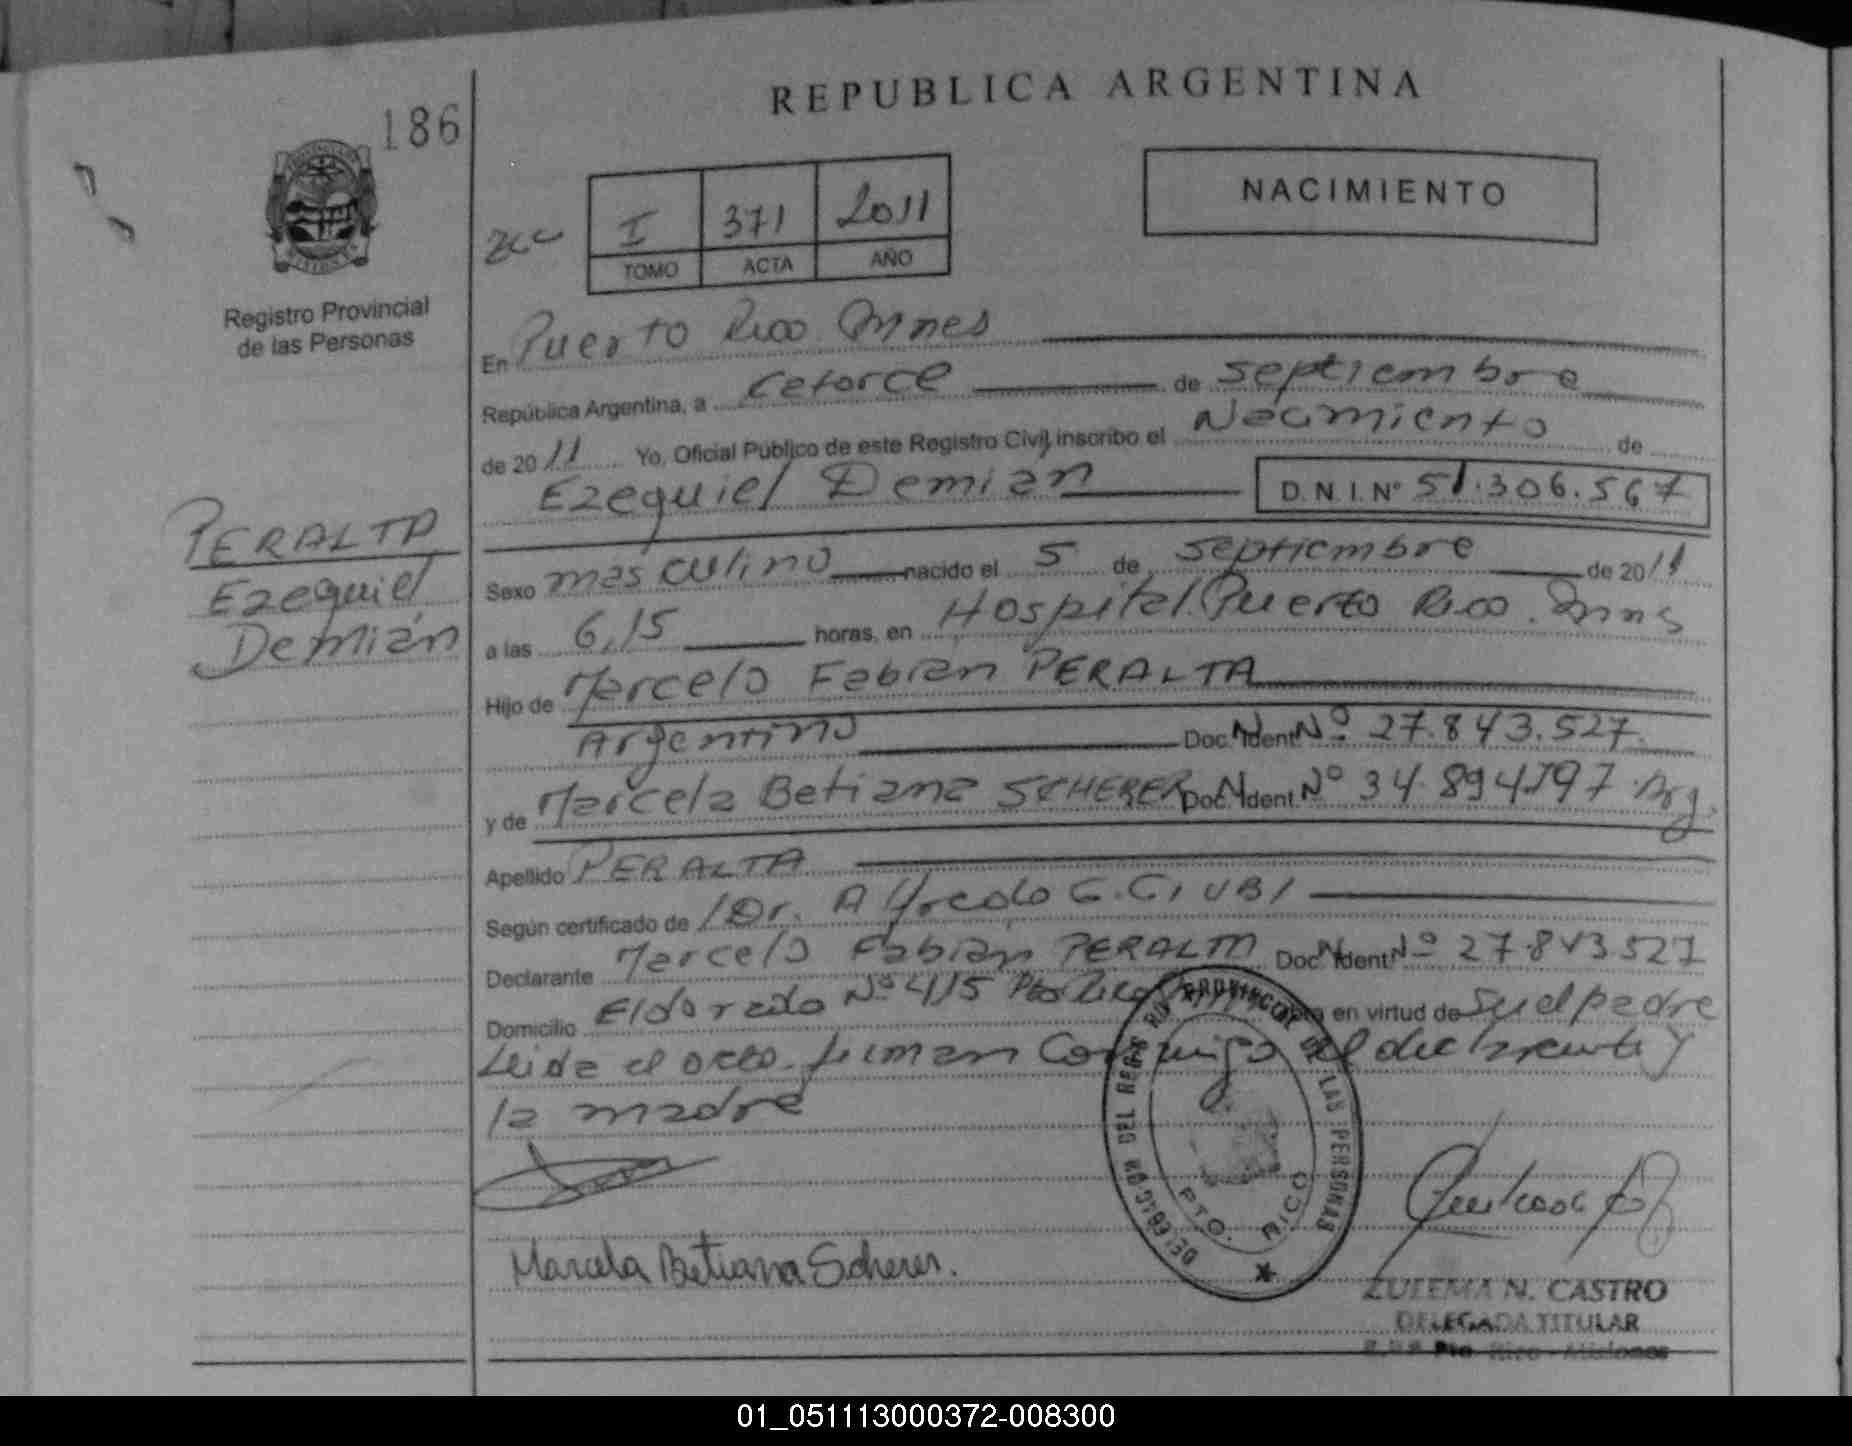 REPUBLICA ARGENTINA
186
NACIMIENTO
I 371 2011
TOMO ACTA AÑO
Registro Provincial
de las Personas
En Puerto Rico Mnes
República Argentina, a catorce de septiembre
de 2011 Yo, Oficial Público de este Registro Civil, inscribo el Nacimiento de
Ezequiel Demian D.N.I. Nº 51.306.567
PERALTA
Ezequiel
Demián
Sexo masculino nacido el 5 de septiembre de 2011
a las 6,15 horas, en Hospital Puerto Rico. Mnes
Hijo de Marcelo Fabian PERALTA
Argentino Doc. Ident. Nº 27.843.527
y de Marcela Betiana SCHERER Doc. Ident. Nº 34.894.197 Arg.
Apellido PERALTA
Según certificado de Dr. Alfredo G. CIUBI
Declarante Marcelo Fabian PERALTA Doc. Ident. Nº 27.843.527
Domicilio Eldorado Nº 415 Pto Rico en virtud de Su el padre
Leida el acta firman Conmigo el declarante y
la madre
DELEGACION DEL REGIS PROVINCIAL DE LAS PERSONAS
PTO. RICO
Marcela Betiana Scherer.
ZULEMA N. CASTRO
DELEGADA TITULAR
Pto. Rico - Misiones
01_051113000372-008300